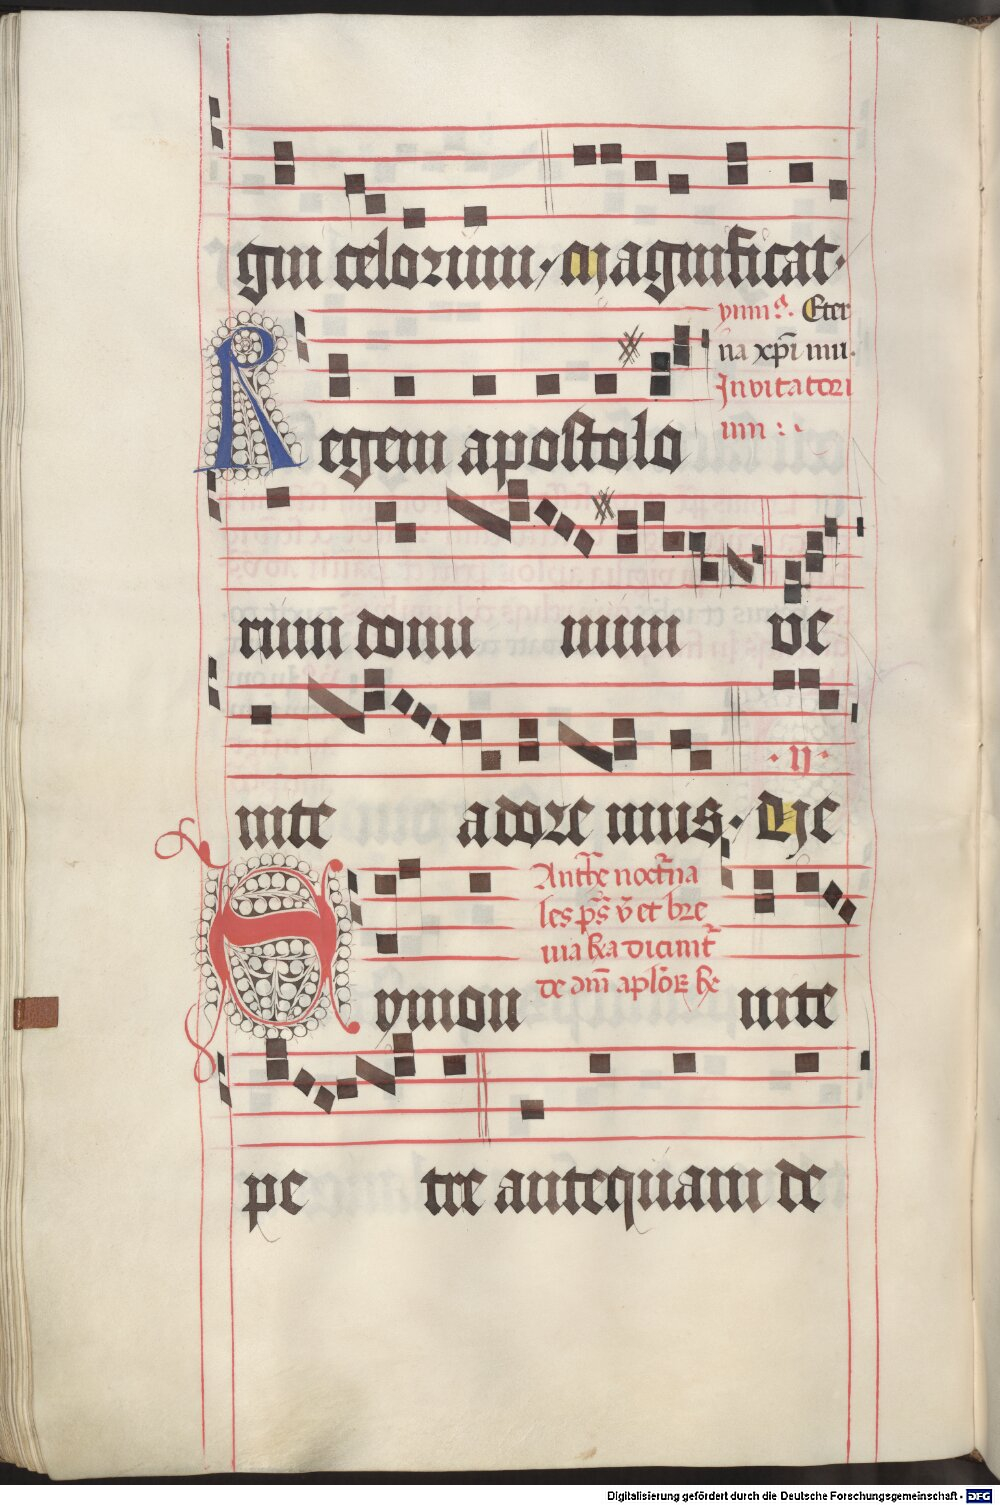 gni celorum. Magnificat.
ymnus. Eter
na xpi mu.
Invitatori
um :
Regem apostolo
rum domi num ve
nite adore mus. ij. Ve
Antiphe nocturna
les ps v et bre
via dicunt
de apostolorum
Symon nite
pe tre antequam de
Digitalisierung gefördert durch die Deutsche Forschungsgemeinschaft - DFG